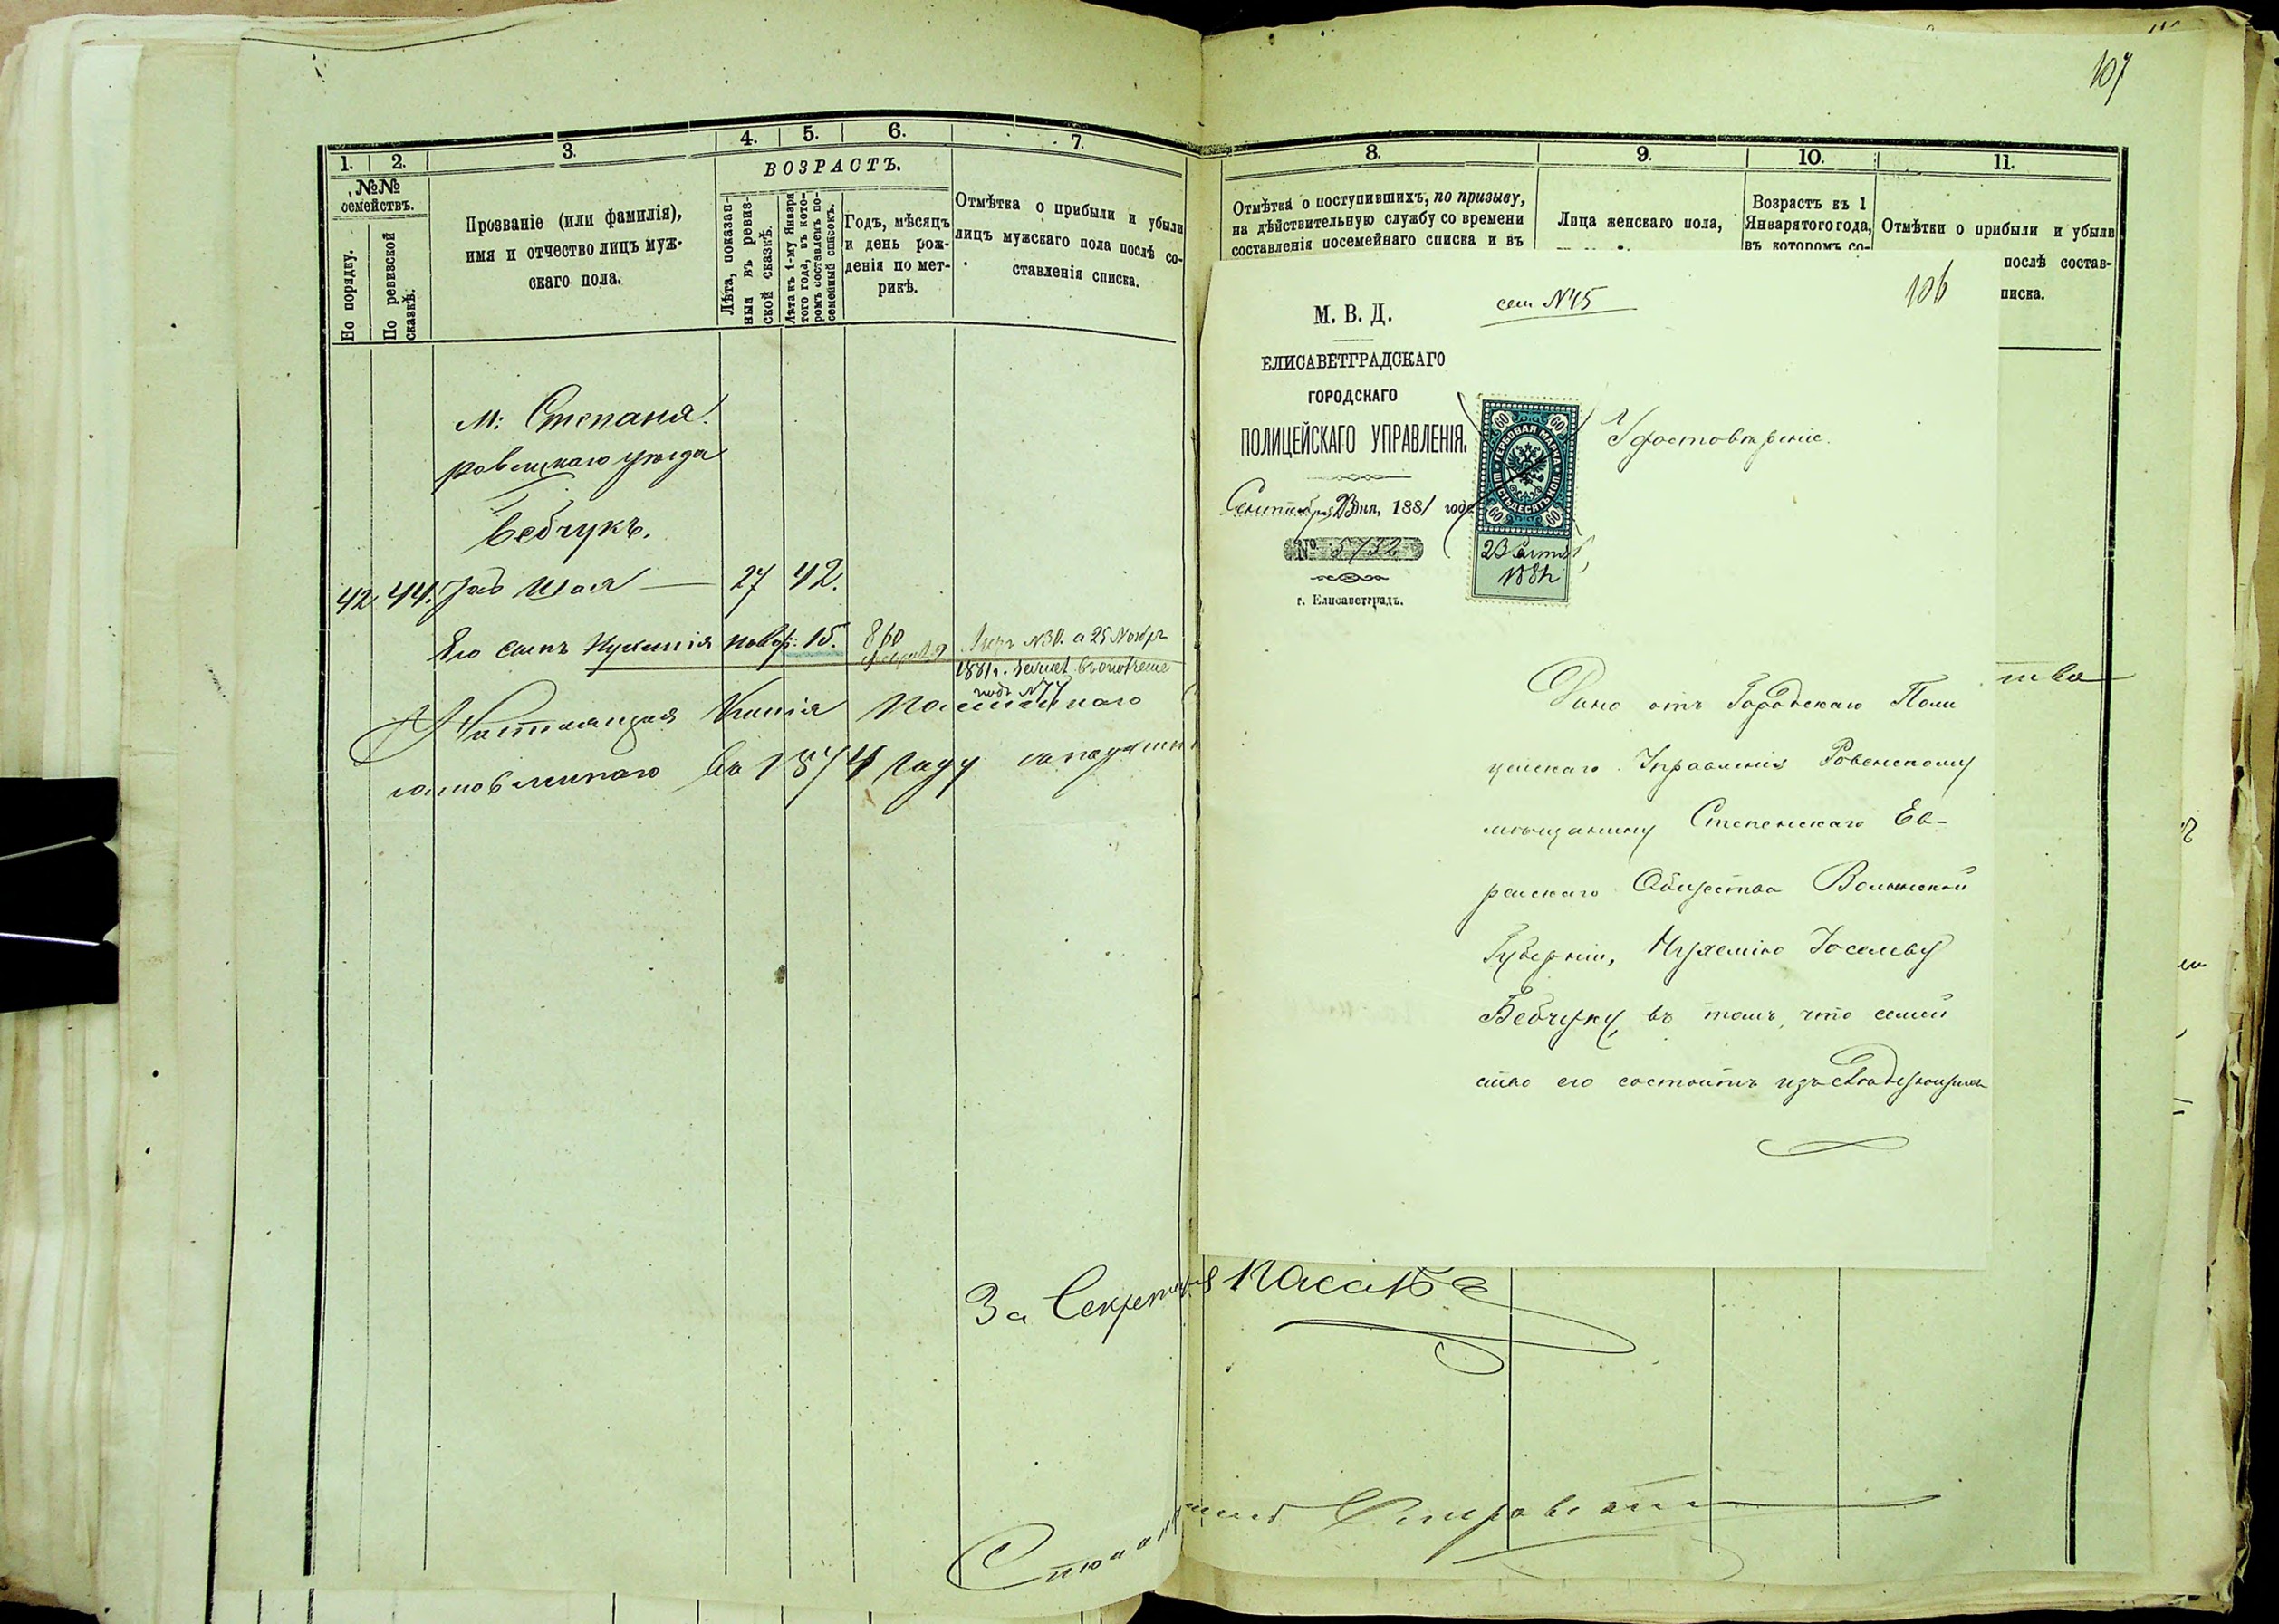 107
1. 2. 3. 4. 5. 6. 7.
№№ семействъ.
По порядку.
По ревизской сказкѣ.
Прозваніе (или фамилія),
имя и отчество лицъ муж-
скаго пола.
ВОЗРАСТЪ.
Лѣта, показан-
ныя въ ревиз-
ской сказкѣ.
Лѣта къ 1-му Января
того года, въ кото-
ромъ составленъ по-
семейный списокъ.
Годъ, мѣсяцъ
и день рож-
денія по мет-
рикѣ.
Отмѣтка о прибыли и убыли
лицъ мужскаго пола послѣ со-
ставленія списка.
М: Степаня
ровенскаго уѣзда
Бебчукъ.
42 44. 27 42.
Его сынъ Нухемія новор: 15. 860
№ 30. а 25 Ноября
1881 г.
подъ №
Настоящая Копія Посемейнаго
составленнаго въ 1874 году
За Секретаря
8. 9. 10. 11.
Отмѣтка о поступившихъ, по призыву,
на дѣйствительную службу со времени
составленія посемейнаго списка и въ
Лица женскаго пола,
Возрастъ къ 1
Января того года,
въ которомъ со-
Отмѣтки о прибыли и убыли
послѣ состав-
писка.
106
сем №45
М. В. Д.
ЕЛИСАВЕТГРАДСКАГО
ГОРОДСКАГО
ПОЛИЦЕЙСКАГО УПРАВЛЕНІЯ.
Сентября 23 дня, 1881 года
№ 5732
г. Елисаветградъ.
60 60
ГЕРБОВАЯ МАРКА
ШЕСТЬДЕСЯТЪ КОП.
60 60
23 Сентяб
1881
Удостовѣреніе.
Дано отъ Городскаго Поли
цейскаго Управленія Ровенскому
мѣщанину Степенскаго Ев-
рейскаго Общества Волынской
Губерніи, Нухемію Іоселеву
Бебчуку, въ томъ, что семей
ство его состоитъ изъ
ства